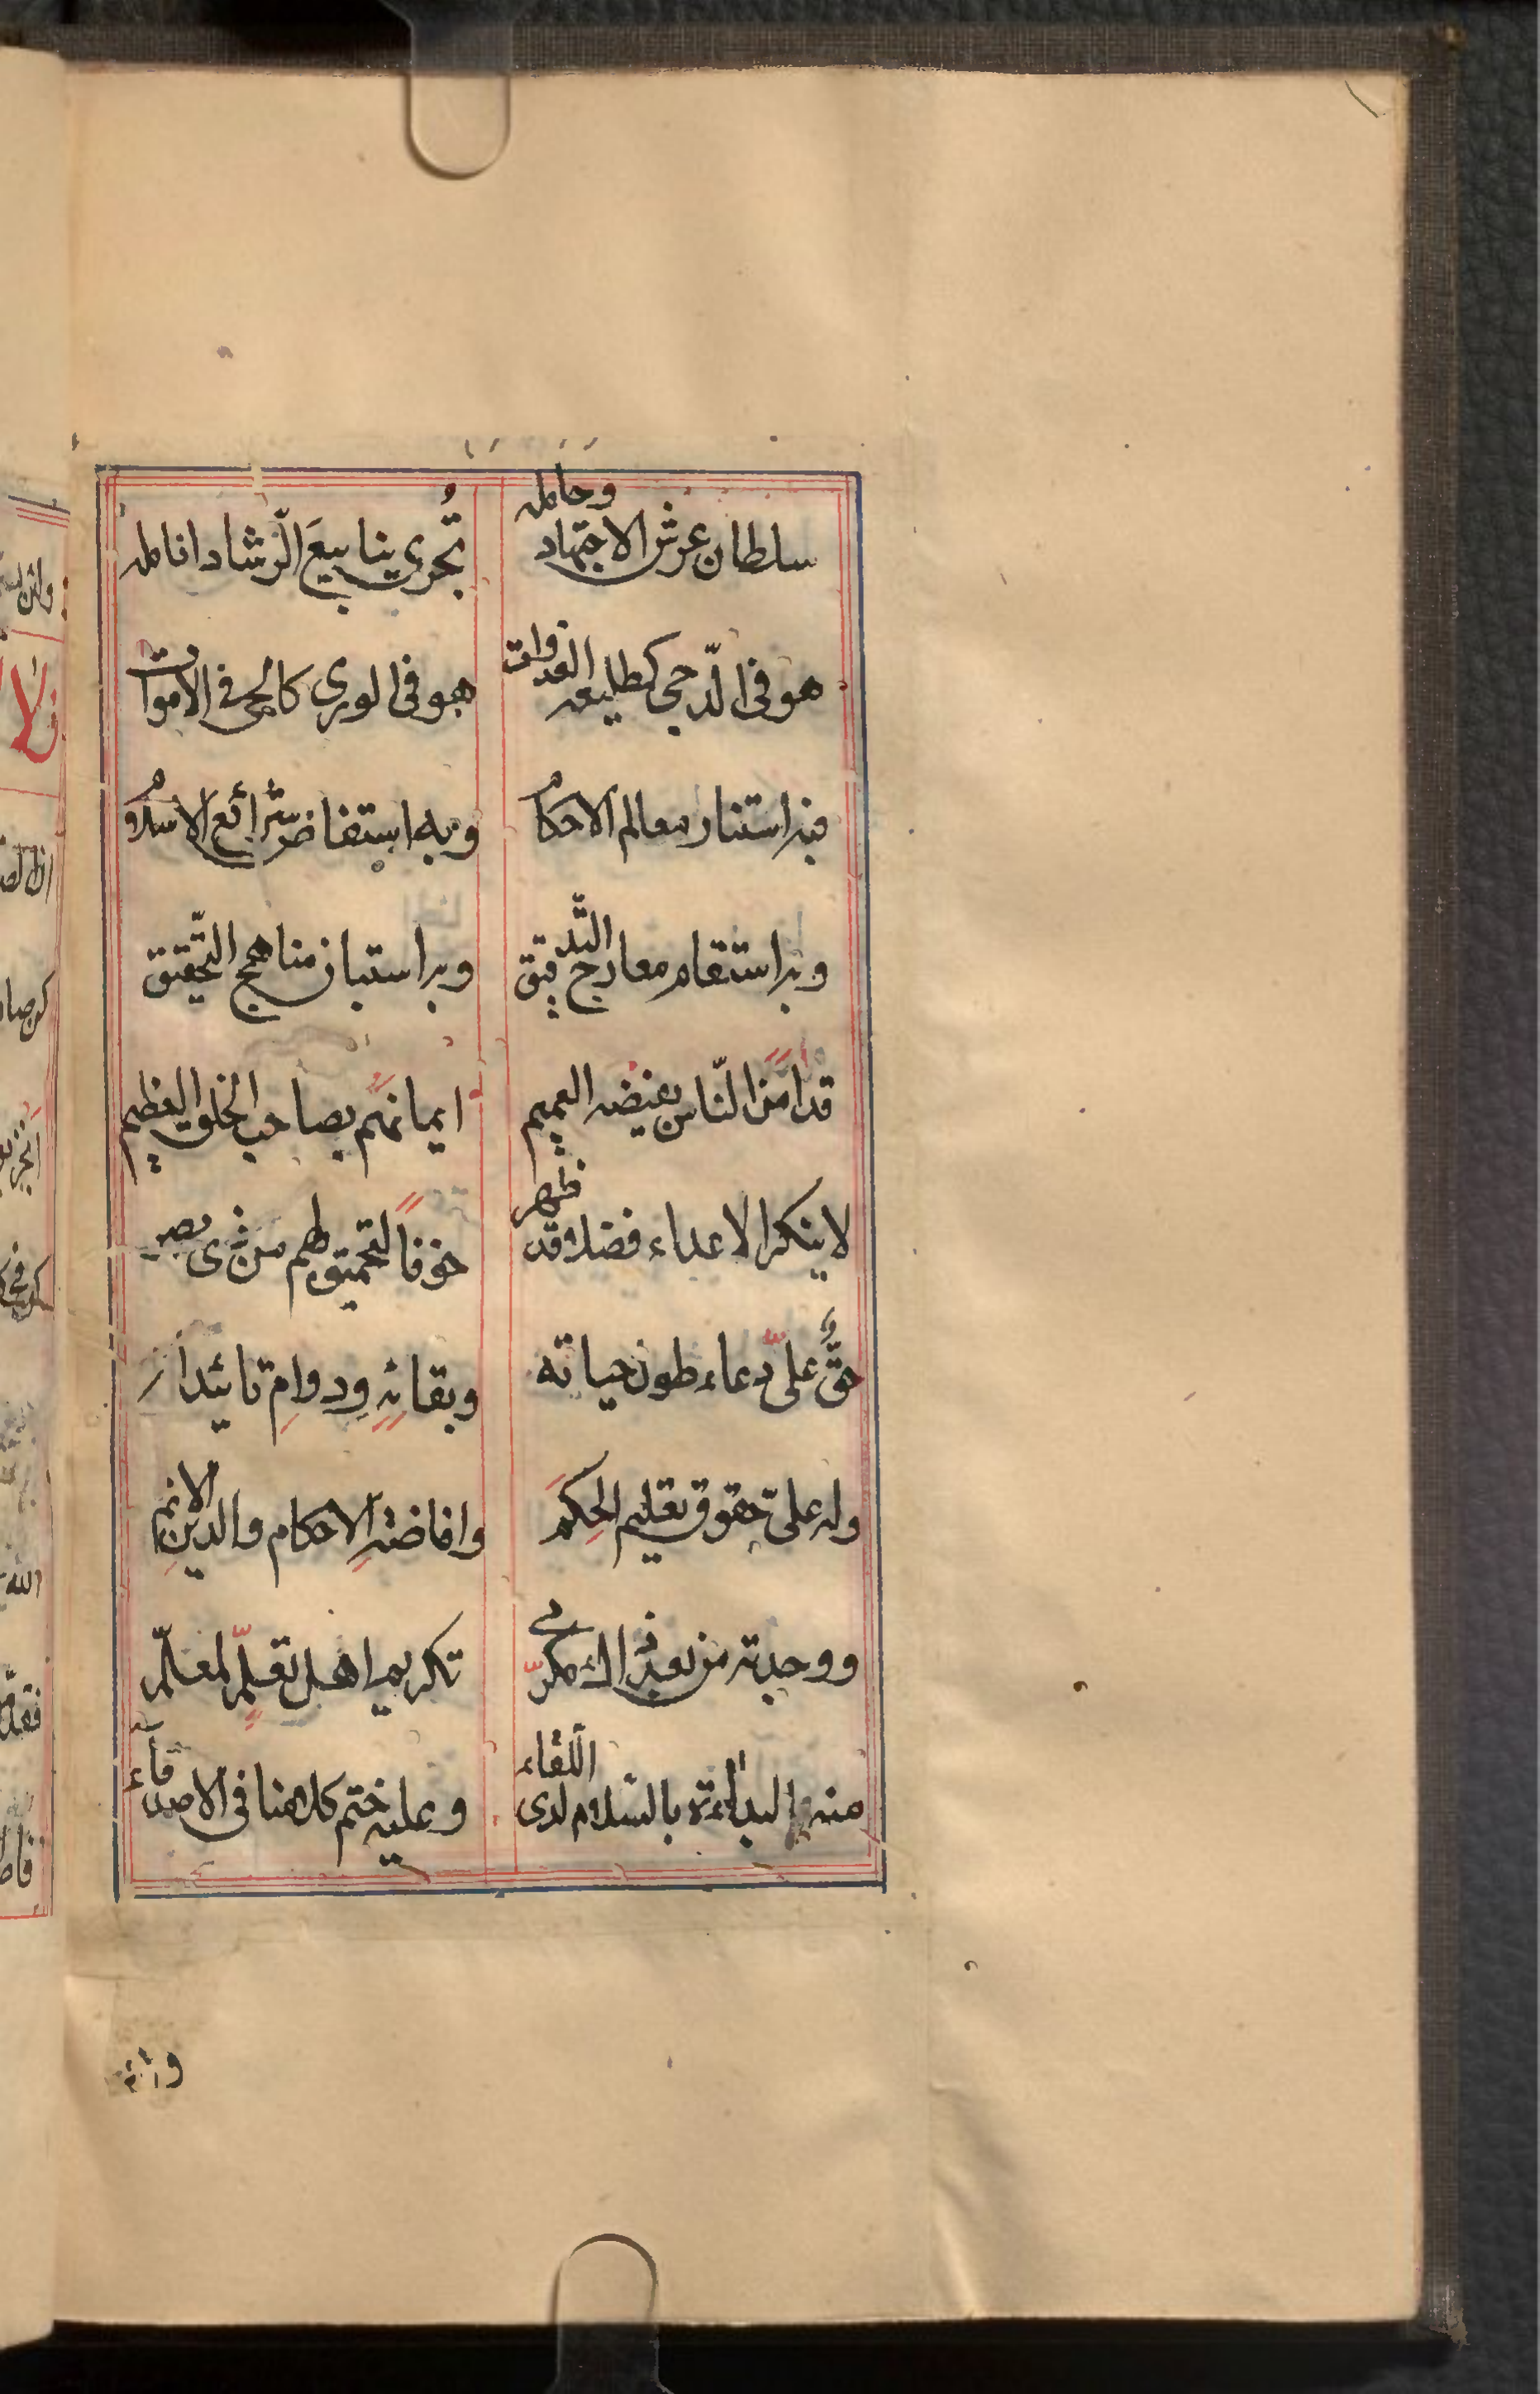 سلطان عرش الاجتهاد وحامله تُجری ینابیعَ الرّشاد انامله
هو فی الدّجی کطلیعه الغدوات هو فی الوری کالحی فی الاموات
فبه استنار معالم الاحکام وبه استفاض شرائع الاسلام
وبه استقام معارج التّدقیق وبه استبان مناهج التّحقیق
قد امن النّاس بفیضه العمیم ایمانهم بصاحب الخلق العظیم
لا ینکر الاعداء فضلا قد ظهر خوفاً لتحمیقهم من ذی بصر
حقٌّ علیّ دعاء طول حیاته وبقائهِ ودوامِ تائیداته
وله علیّ حقوق تعلیم الحِکَم وافاضهِ الاحکام والدینِ الاتم
ووجدته من بعد ذاك مکرّمی تکریم اهل تعلّمٍ لمعلّم
منه البداءة بالسّلام لدی اللّقاء وعلیه ختم کلامنا فی الاصدقاء